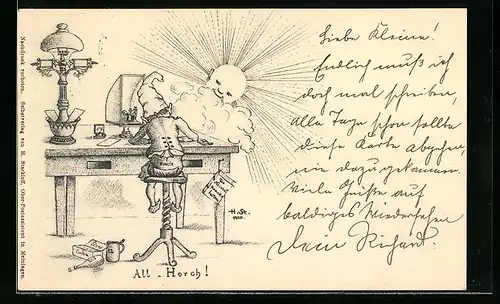 Nachdruck verboten. Selbstverlag von H. Starkloff, Ober-Postassistent in Meiningen.
H. St.
All - Horch!
Liebe Kleine!
Endlich muß ich
doch mal schreiben,
Alle Tage schon sollte
diese Karte abgehen,
nie dazu gekommen.
Viele Grüße auf
baldiges Wiedersehen
Dein Richard.